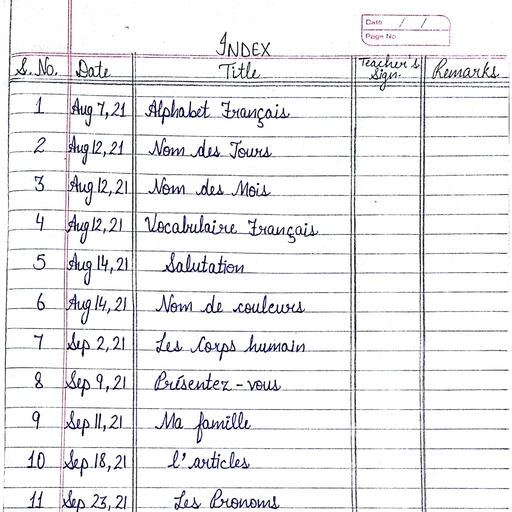 Date / /
Page No.
INDEX
S. No. Date Title Teacher's Sign. Remarks
1 Aug 7, 21 Alphabet Français
2 Aug 12, 21 Nom des Jours
3 Aug 12, 21 Nom des Mois
4 Aug 12, 21 Vocabulaire Français
5 Aug 14, 21 Salutation
6 Aug 14, 21 Nom de couleurs
7 Sep 2, 21 Les Corps humain
8 Sep 9, 21 Présentez-vous
9 Sep 11, 21 Ma famille
10 Sep 18, 21 l'articles
11 Sep 23, 21 Les Pronoms